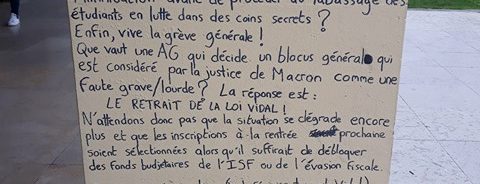 avant de procéder au tabassage des
étudiants en lutte dans des coins secrets ?
Enfin, vive la grève générale !
Que vaut une AG qui décide un blocus général qui
est considéré par la justice de Macron comme une
faute grave/lourde ? La réponse est :
LE RETRAIT DE LA LOI VIDAL !
N'attendons donc pas que la situation se dégrade encore
plus et que les inscriptions à la rentrée prochaine
soient sélectionnées alors qu'il suffirait de débloquer
des fonds budjetaires de l'ISF ou de l'évasion fiscale.